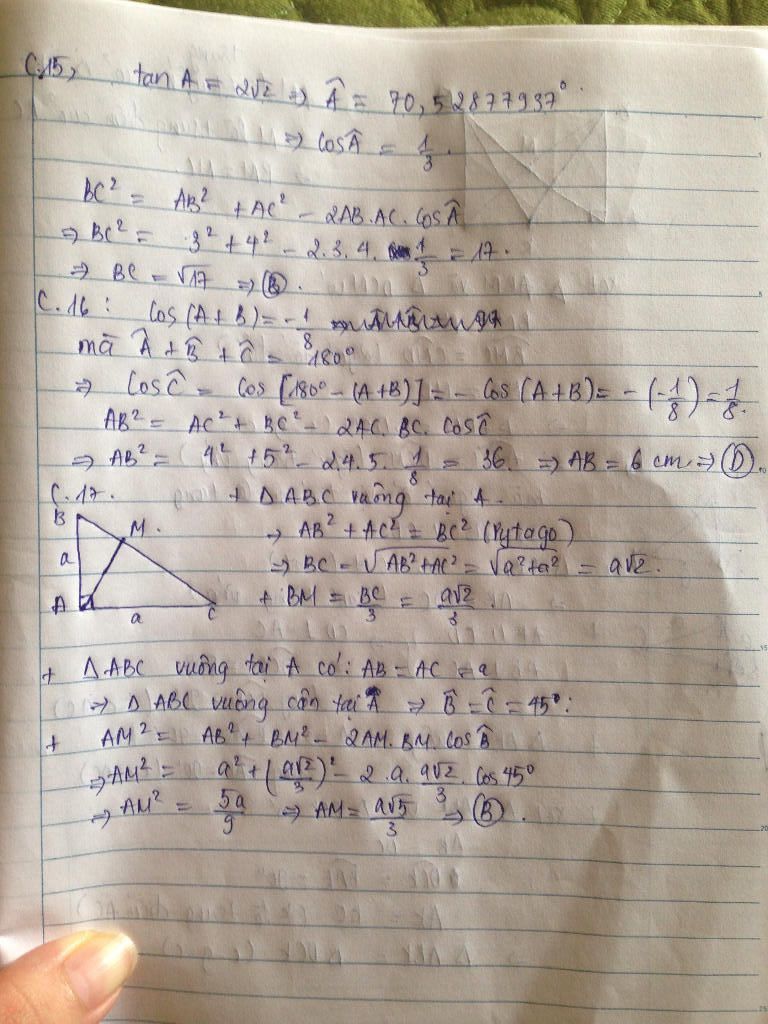 C.15, tan A = 2√2 ⇒ Â = 70,52877937°
⇒ cosÂ = 1/3.
BC² = AB² + AC² - 2AB.AC.cosÂ
⇒ BC² = 3² + 4² - 2.3.4. 1/3 = 17.
⇒ BC = √17 ⇒ Ⓑ.
C.16: cos(A+B) = -1/8
mà Â + B̂ + Ĉ = 180°
⇒ CosĈ = cos[180° - (A+B)] = - cos(A+B) = -(-1/8) = 1/8.
AB² = AC² + BC² - 2AC.BC.cosĈ
⇒ AB² = 4² + 5² - 2.4.5. 1/8 = 36. ⇒ AB = 6 cm ⇒ Ⓓ.
C.17. + Δ ABC vuông tại A.
B
M.
⇒ AB² + AC² = BC² (Pytago)
a
⇒ BC = √(AB²+AC²) = √(a²+a²) = a√2.
A
C
+ BM = BC/3 = a√2/3.
a
+ Δ ABC vuông tại A có: AB = AC = a
⇒ Δ ABC vuông cân tại A ⇒ B̂ = Ĉ = 45°:
+ AM² = AB² + BM² - 2AM.BM.cosB̂
⇒ AM² = a² + (a√2/3)² - 2.a. a√2/3 .cos 45°
⇒ AM² = 5a/9 ⇒ AM = a√5/3 ⇒ Ⓑ.